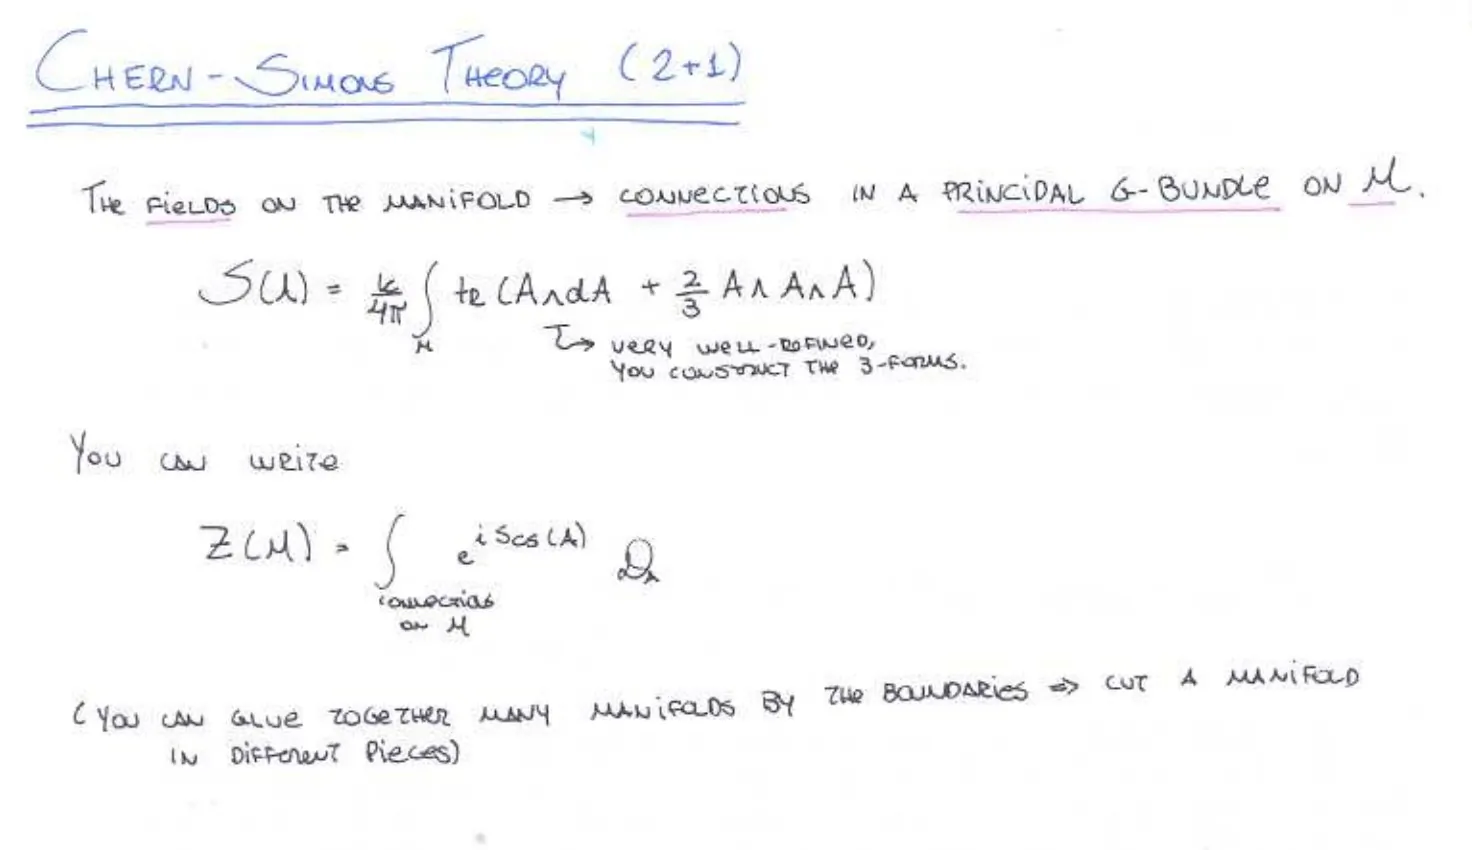 CHERN-SIMONS THEORY (2+1)
THE FIELDS ON THE MANIFOLD → CONNECTIONS IN A PRINCIPAL G-BUNDLE ON M.
S(A) = k/4π ∫_M tr (A∧dA + 2/3 A∧A∧A)
↳ VERY WELL-DEFINED,
YOU CONSTRUCT THE 3-FORMS.
YOU CAN WRITE
Z(M) = ∫ e^{i S_CS(A)} D_A
CONNECTIONS
ON M
(YOU CAN GLUE TOGETHER MANY MANIFOLDS BY THE BOUNDARIES ⇒ CUT A MANIFOLD
IN DIFFERENT PIECES)